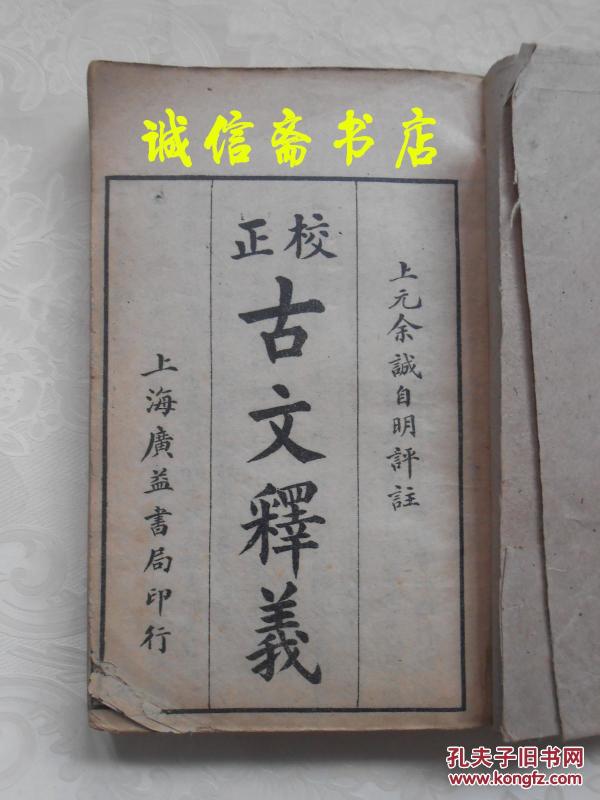 诚信斋书店
上元余誠自明評註
校正
古文釋義
上海廣益書局印行
孔夫子旧书网
www.kongfz.com